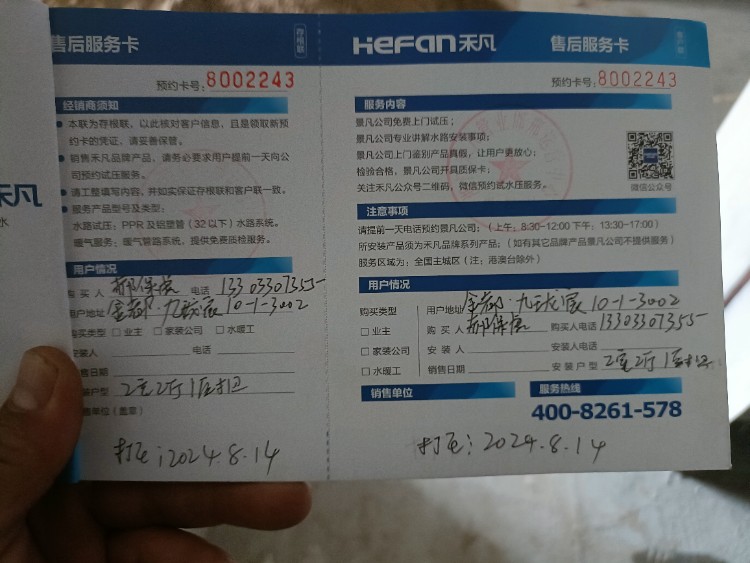 售后服务卡
存根联
预约卡号:8002243
经销商须知
本联为存根联,以此核对客户信息,且是领取新预
约卡的凭证,请妥善保管。
销售禾凡品牌产品,请务必要求用户提前一天向公
司预约试压服务。
请工整填写内容,并如实保证存根联和客户联一致。
服务产品型号及类型:
水路试压:PPR 及铝塑管(32 以下)水路系统。
暖气服务:暖气管路系统,提供免费质检服务。
用户情况
购 买 人 郝保 电话 13303307355
用户地址 金都·九珑宸10-1-3002
购买类型 □ 业主 □ 家装公司 □ 水暖工
安装人 电话
销售日期
安装户型 2室2厅1厨1卫
销售单位(盖章)
打压:2024.8.14
禾凡
水
HeFan禾凡 售后服务卡
预约卡号:8002243
服务内容
景凡公司免费上门试压;
景凡公司专业讲解水路安装事项;
景凡公司上门鉴别产品真假,让用户更放心;
检验合格,景凡公司开具质保卡;
关注禾凡公众号二维码,微信预约试水压服务。
微信公众号
注意事项
请提前一天电话预约景凡公司;(上午:8:30-12:00 下午:13:30-17:00)
所安装产品须为禾凡品牌系列产品;(如有其它品牌产品景凡公司不提供服务)
服务区域为:全国主城区(注:港澳台除外)
用户情况
购买类型 用户地址 金都·九珑宸10-1-3002
□ 业主 购 买 人 郝保 购买人电话 13303307355
□ 家装公司 安 装 人 安装人电话
□ 水暖工 销售日期 安装户型 2室2厅1厨1卫
销售单位 服务热线
400-8261-578
打压:2024.8.14